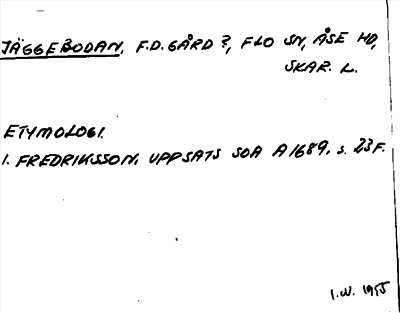 JÄGGEBODAN, F.D. GÅRD?, FLO SN, ÅSE HD,
SKAR. L.
ETYMOLOGI.
I. FREDRIKSSON, UPPSATS SOA A 1689, S. 23 F.
I.W. 1955